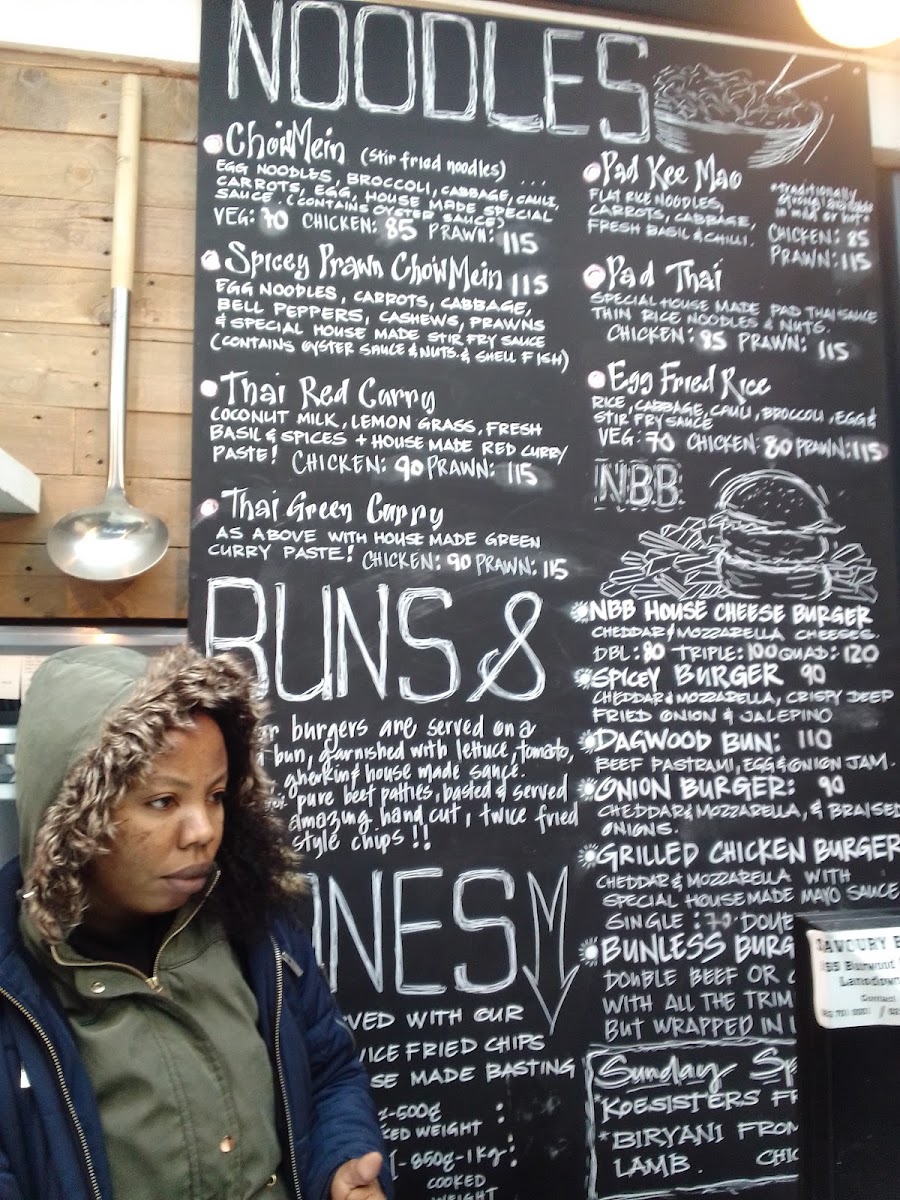 NOODLES
ChowMein (stir fried noodles) ...
EGG NOODLES, BROCCOLI, CABBAGE, CAULI,
CARROTS, EGG, HOUSE MADE SPECIAL
SAUCE. (CONTAINS OYSTER SAUCE)
VEG: 70 CHICKEN: 85 PRAWN: 115
Spicey Prawn ChowMein 115
EGG NOODLES, CARROTS, CABBAGE,
BELL PEPPERS, CASHEWS, PRAWNS
& SPECIAL HOUSE MADE STIR FRY SAUCE
(CONTAINS OYSTER SAUCE & NUTS. & SHELL FISH)
Thai Red Curry
COCONUT MILK, LEMON GRASS, FRESH
BASIL & SPICES + HOUSE MADE RED CURRY
PASTE! CHICKEN: 90 PRAWN: 115
Thai Green Curry
AS ABOVE WITH HOUSE MADE GREEN
CURRY PASTE! CHICKEN: 90 PRAWN: 115
Pad Kee Mao
*traditionally
strong available
in mild or hot*
FLAT RICE NOODLES,
CARROTS, CABBAGE,
FRESH BASIL & CHILLI.
CHICKEN: 85
PRAWN: 115
Pad Thai
SPECIAL HOUSE MADE PAD THAI SAUCE
THIN RICE NOODLES & NUTS.
CHICKEN: 85 PRAWN: 115
Egg Fried Rice
RICE, CABBAGE, CAULI, BROCCOLI, EGG &
STIR FRY SAUCE
VEG: 70 CHICKEN: 80 PRAWN: 115
NBB
BUNS &
burgers are served on a
bun, garnished with lettuce, tomato,
gherkin & house made sauce.
pure beef patties, basted & served
amazing hand cut, twice fried
style chips !!
NBB HOUSE CHEESE BURGER
CHEDDAR & MOZZARELLA CHEESES.
DBL: 80 TRIPLE: 100 QUAD: 120
SPICEY BURGER 90
CHEDDAR & MOZZARELLA, CRISPY DEEP
FRIED ONION & JALEPINO
DAGWOOD BUN: 110
BEEF PASTRAMI, EGG & ONION JAM.
ONION BURGER: 90
CHEDDAR & MOZZARELLA, & BRAISED
ONIONS.
GRILLED CHICKEN BURGER
CHEDDAR & MOZZARELLA WITH
SPECIAL HOUSE MADE MAYO SAUCE
SINGLE : 70 DOUB
BUNLESS BURG
DOUBLE BEEF OR
WITH ALL THE TRIM
BUT WRAPPED IN
NES
VED WITH OUR
ICE FRIED CHIPS
SE MADE BASTING
-500g :
KED WEIGHT
-850g-1Kg:
COOKED
WEIGHT
Sunday Sp
*KOESISTERS FR
*BIRYANI FROM
LAMB. CHIC
Lansdow
Contact